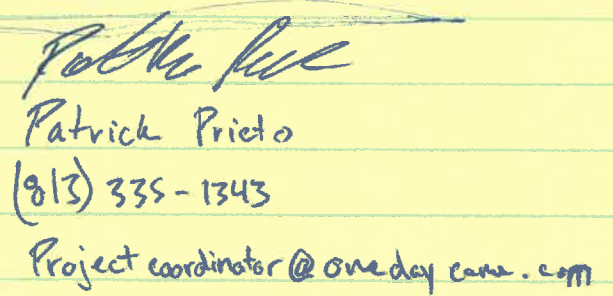 Patrick Prieto
(813) 335-1343
Projectcoordinator@onedaycame.com